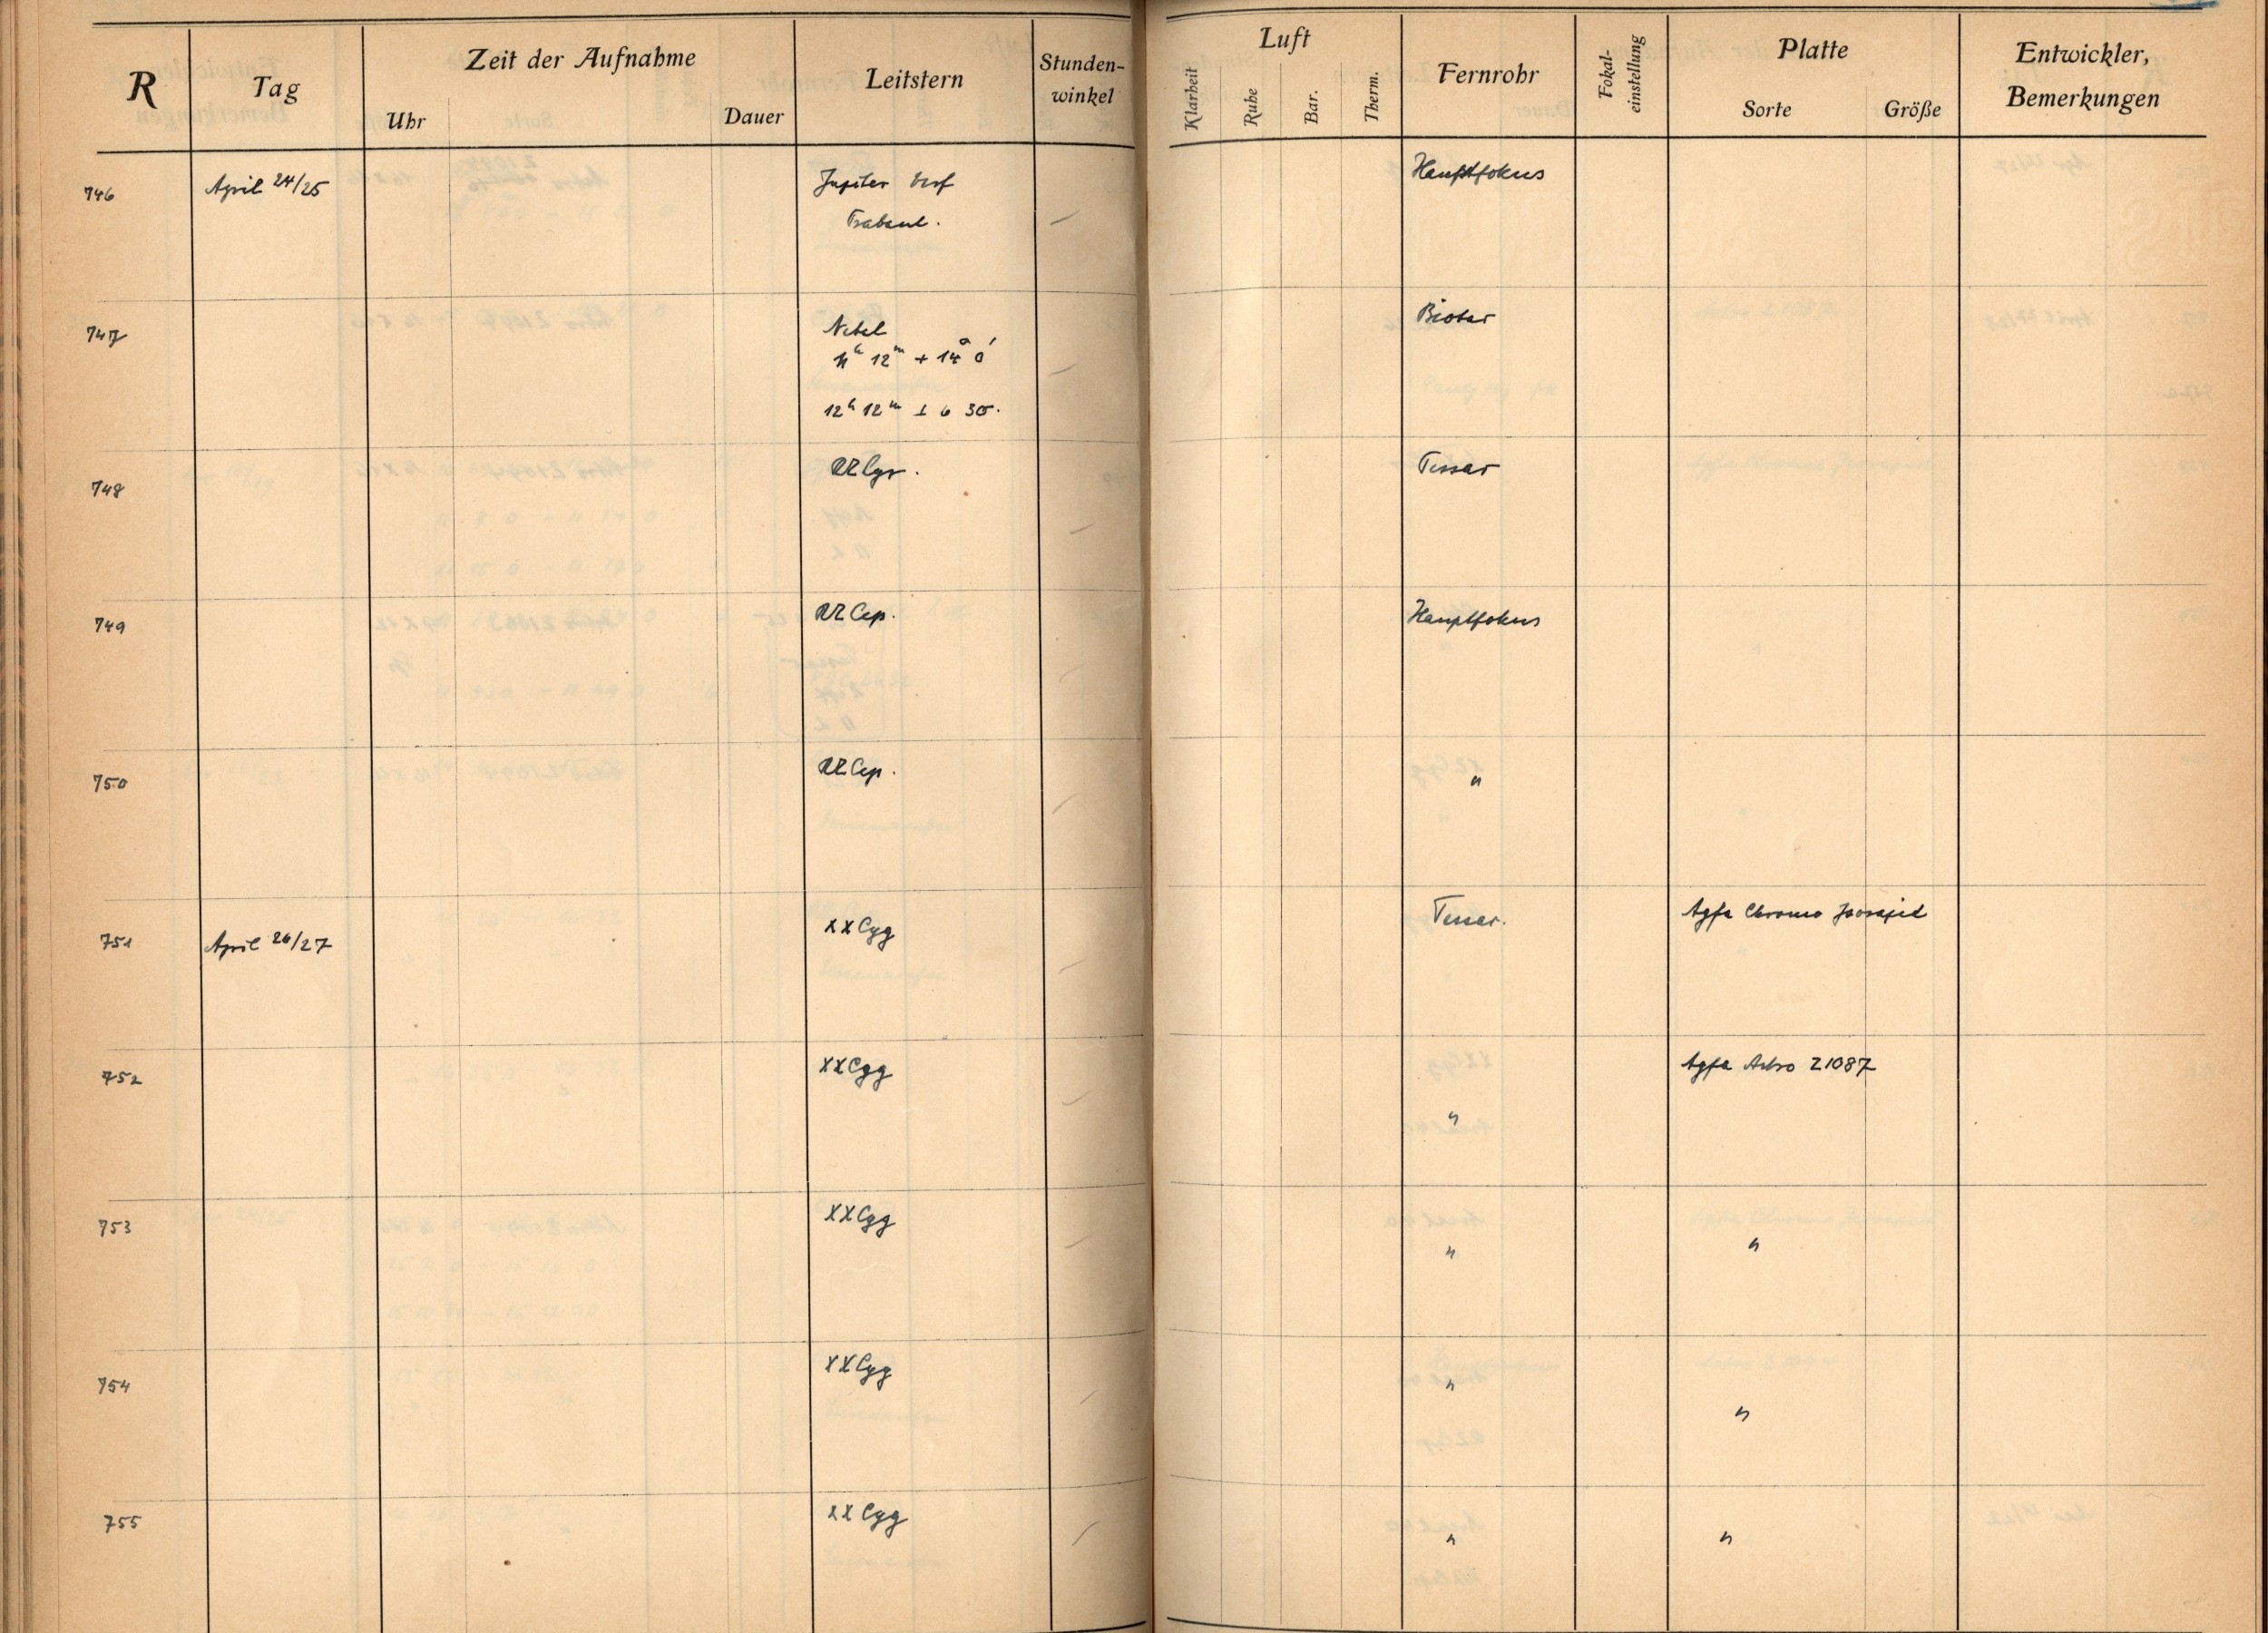 R Tag Zeit der Aufnahme Leitstern Stunden-winkel Luft Fernrohr Fokal-einstellung Platte Entwickler, Bemerkungen
Uhr Dauer Klarheit Ruhe Bar. Therm. Sorte Größe
746 April 24/25 Jupiter Hauptfokus
Trabant.
747 Nebel Biotar
11h 12m + 14° 0'
12h 12m ± 6 30.
748 RR Lyr. Tessar
749 RZ Cep. Hauptfokus
750 RZ Cep. "
751 April 26/27 XX Cyg Tessar. Agfa Chromo
752 XX Cyg " Agfa Astro Z1087
753 XX Cyg " "
754 XX Cyg " "
755 XX Cyg " "